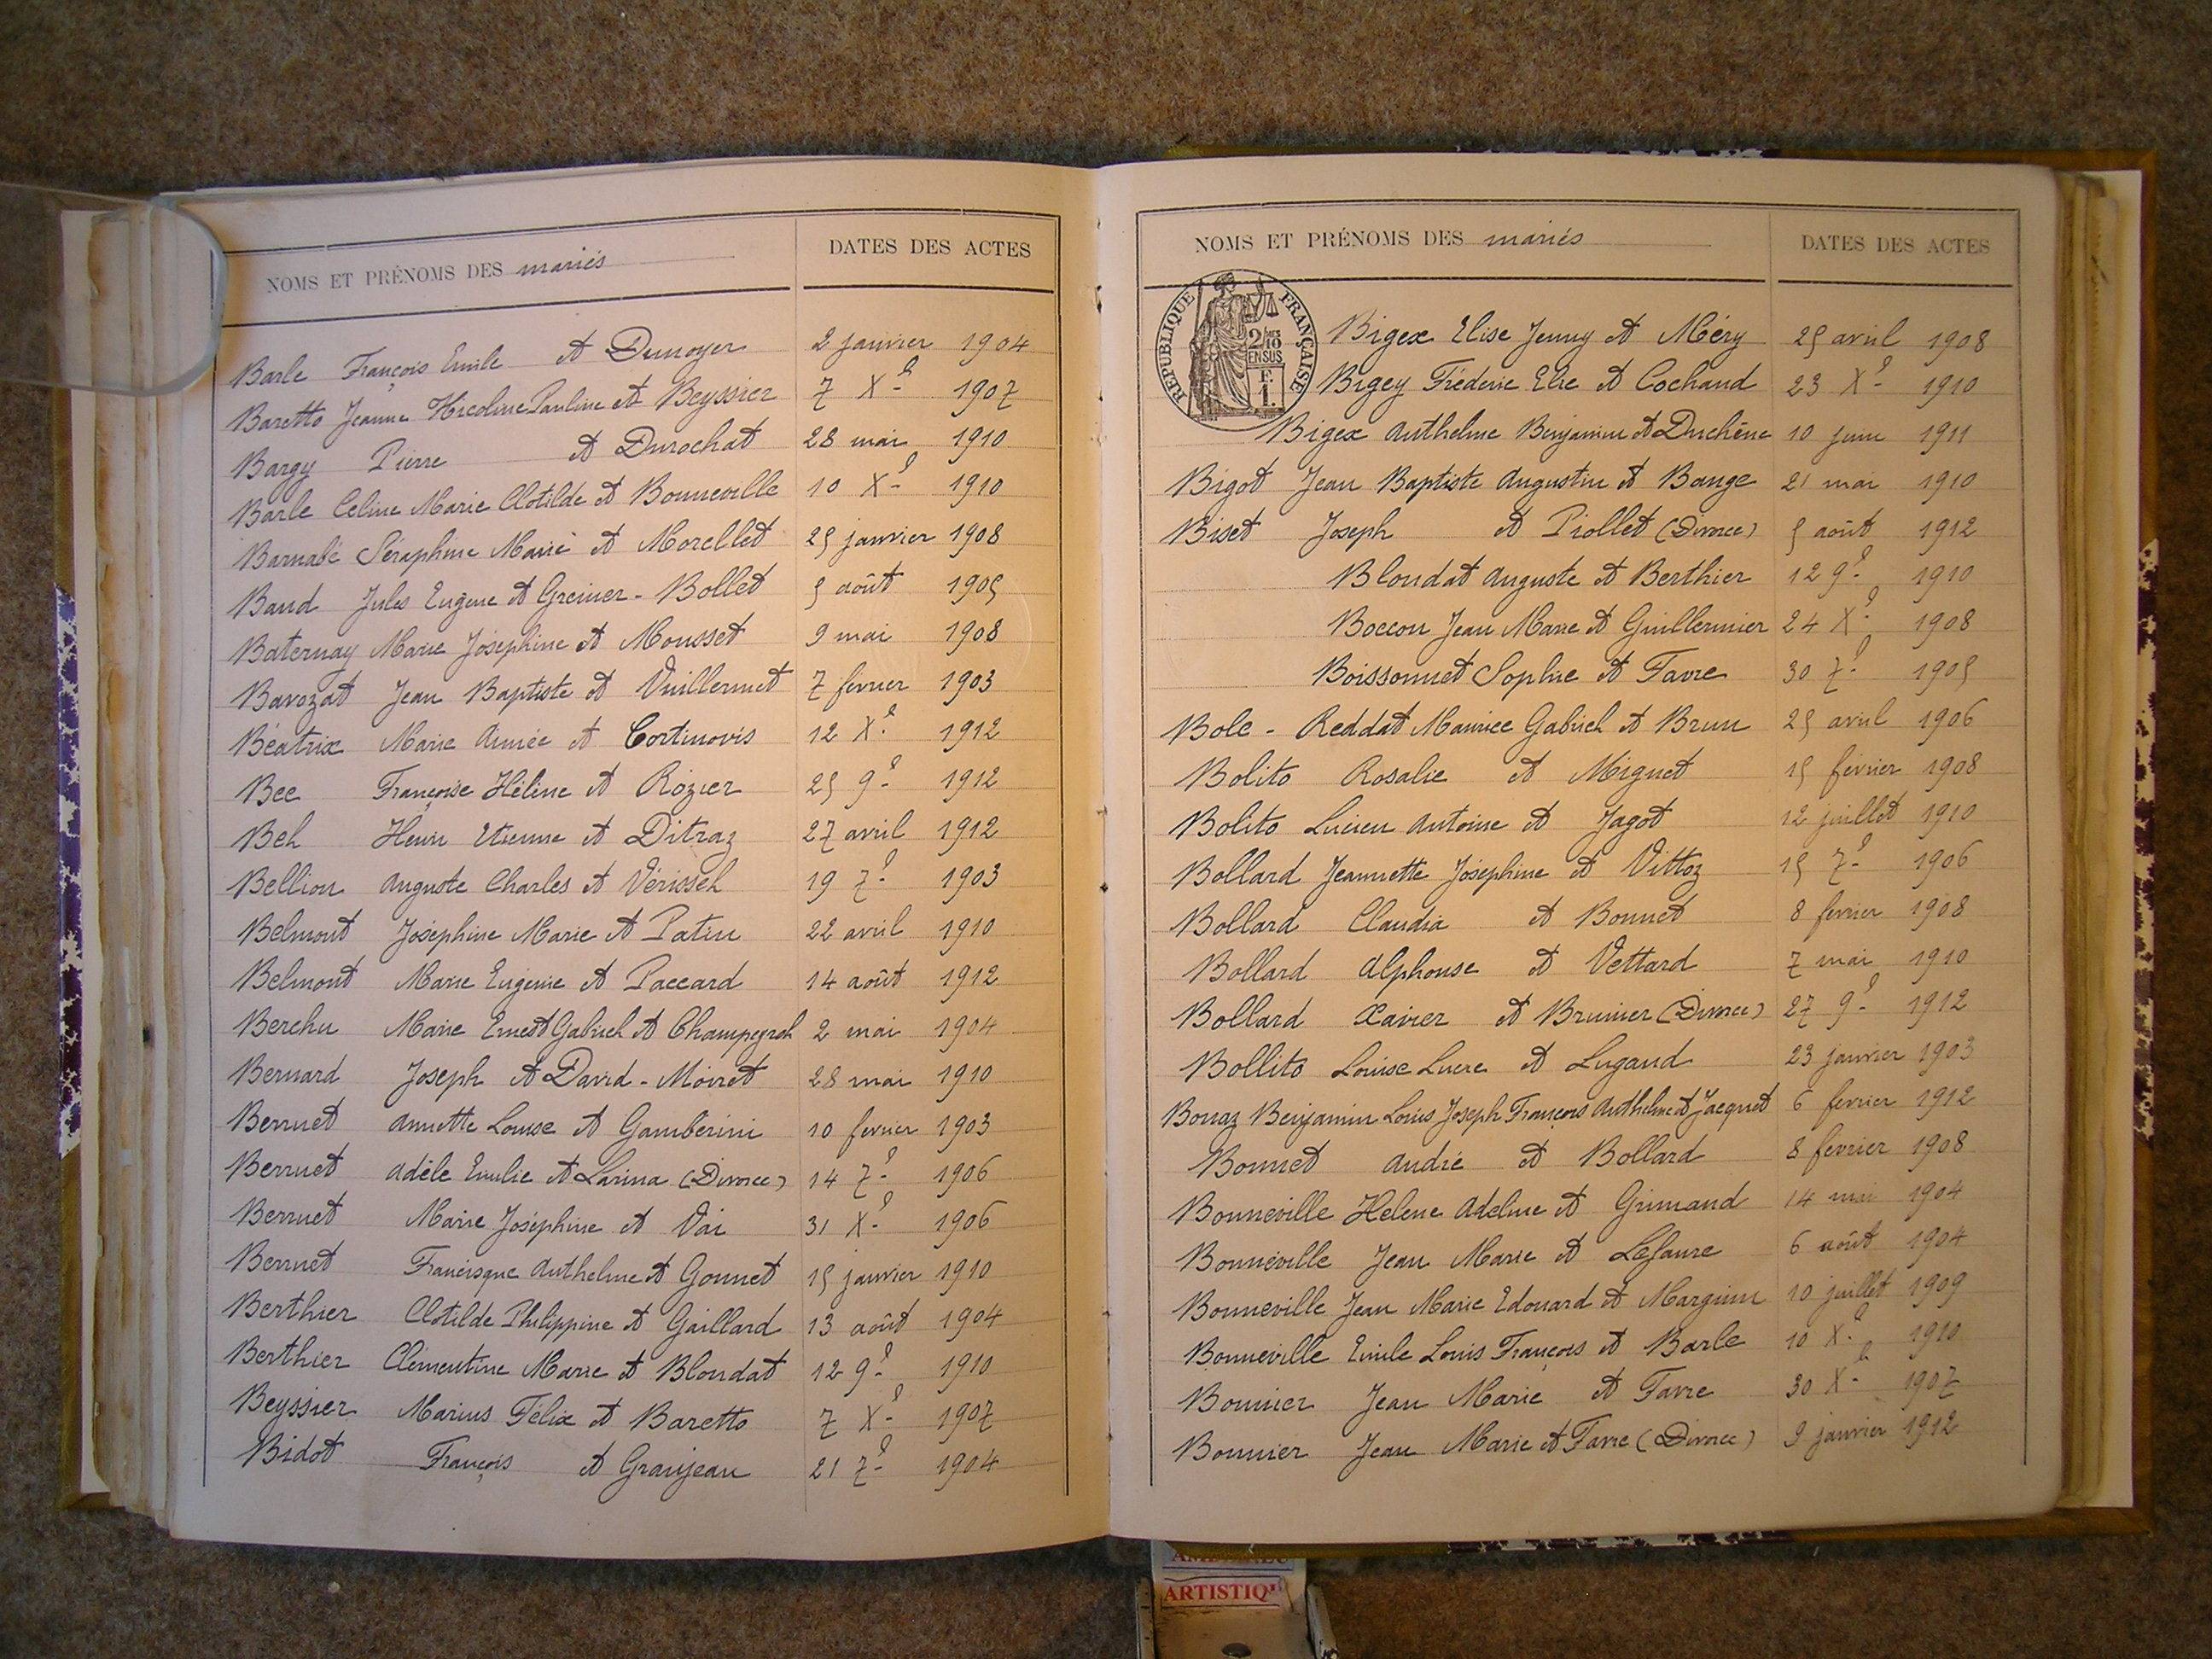 NOMS ET PRÉNOMS DES mariés DATES DES ACTES
Barle François Emile et Dunoyer 2 janvier 1904
Baretto Jeanne Nicoline Pauline et Beyssier 7 Xe 1907
Bargy Pierre et Durochat 28 mai 1910
Barle Celine Marie Clotilde et Bonneville 10 Xe 1910
Barnabé Séraphine Marie et Morellet 25 janvier 1908
Baud Jules Eugène et Greiner - Bollet 5 août 1905
Baternay Marie Joséphine et Mousset 9 mai 1908
Bavozat Jean Baptiste et Vuillermet 7 février 1903
Béatrix Marie Aimée et Cortinovis 12 Xe 1912
Bec Françoise Hélène et Rozier 25 9e 1912
Bel Henri Etienne et Ditraz 27 avril 1912
Bellion Auguste Charles et Vérissel 19 7e 1903
Belmont Joséphine Marie et Patin 22 avril 1910
Belmont Marie Eugénie et Paccard 14 août 1912
Berchu Marie Ernest Gabriel et Champeyrol 2 mai 1904
Bernard Joseph et David - Moiret 28 mai 1910
Berruet Annette Louise et Gamberini 10 fevrier 1903
Berruet Adèle Emilie et Larina (Divorce) 14 7e 1906
Berruet Marie Joséphine et Vai 31 Xe 1906
Berruet Francisque Anthelme et Gonnet 15 janvier 1910
Berthier Clotilde Philippine et Gaillard 13 août 1904
Berthier Clémentine Marie et Blondat 12 9e 1910
Beyssier Marius Félix et Baretto 7 Xe 1907
Bidot François et Granjean 21 7e 1904
NOMS ET PRÉNOMS DES mariés DATES DES ACTES
REPUBLIQUE FRANÇAISE
2/10 EN SUS
F. 1.
Bigex Elise Jenny et Méry 25 avril 1908
Bigey Fréderic Elie et Cochand 23 Xe 1910
Bigex Anthelme Benjamin et Duchêne 10 juin 1911
Bigot Jean Baptiste Augustin et Bange 21 mai 1910
Biset Joseph et Piollet (Divorce) 5 août 1912
Blondat Auguste et Berthier 12 9e 1910
Boccon Jean Marie et Guillermier 24 Xe 1908
Boissonnet Sophie et Favre 30 7e 1905
Bole - Reddat Maurice Gabriel et Brun 25 avril 1906
Bolito Rosalie et Miguet 15 février 1908
Bolito Lucien Antoine et Jagot 12 juillet 1910
Bollard Jeannette Joséphine et Vittoz 15 7e 1906
Bollard Claudia et Bonnet 8 fevrier 1908
Bollard Alphonse et Vettard 7 mai 1910
Bollard Xavier et Brunier (Divorce) 27 9e 1912
Bollito Louise Lucie et Lugand 23 janvier 1903
Borraz Benjamin Louis Joseph François Anthelme et Jacquet 6 fevrier 1912
Bonnet André et Bollard 8 fevrier 1908
Bonneville Helene Adeline et Grimand 14 mai 1904
Bonneville Jean Marie et Lefaure 6 août 1904
Bonneville Jean Marie Edouard et Marguin 10 juillet 1909
Bonneville Emile Louis François et Barle 10 Xe 1910
Bonnier Jean Marie et Favre 30 Xe 1907
Bonnier Jean Marie et Favre (Divorce) 9 janvier 1912
ARTISTIQU